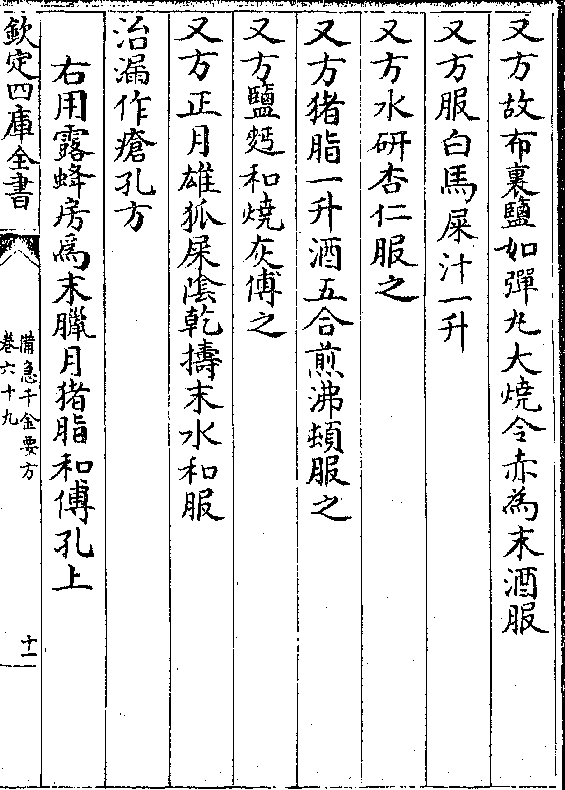 又方故布裹鹽如彈丸大燒令赤為末酒服
又方服白馬屎汁一升
又方水研杏仁服之
又方猪脂一升酒五合煎沸頓服之
又方鹽麫和燒灰傅之
又方正月雄狐屎隂乾擣末水和服
治漏作瘡孔方
右用露蜂房為末臘月猪脂和傅孔上
欽定四庫全書
備急千金要方
卷六十九
十一